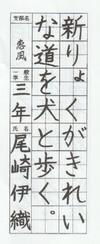 新りょくがきれい
な道を犬と歩く。
支部名
恵風
三年
氏名
尾崎伊織